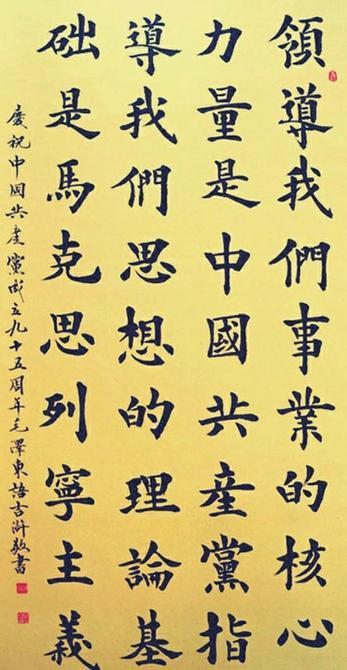 領導我們事業的核心
力量是中國共産黨指
導我們思想的理論基
础是馬克思列寧主義
慶祝中国共産黨成立九十五周年毛澤東語吉敬書